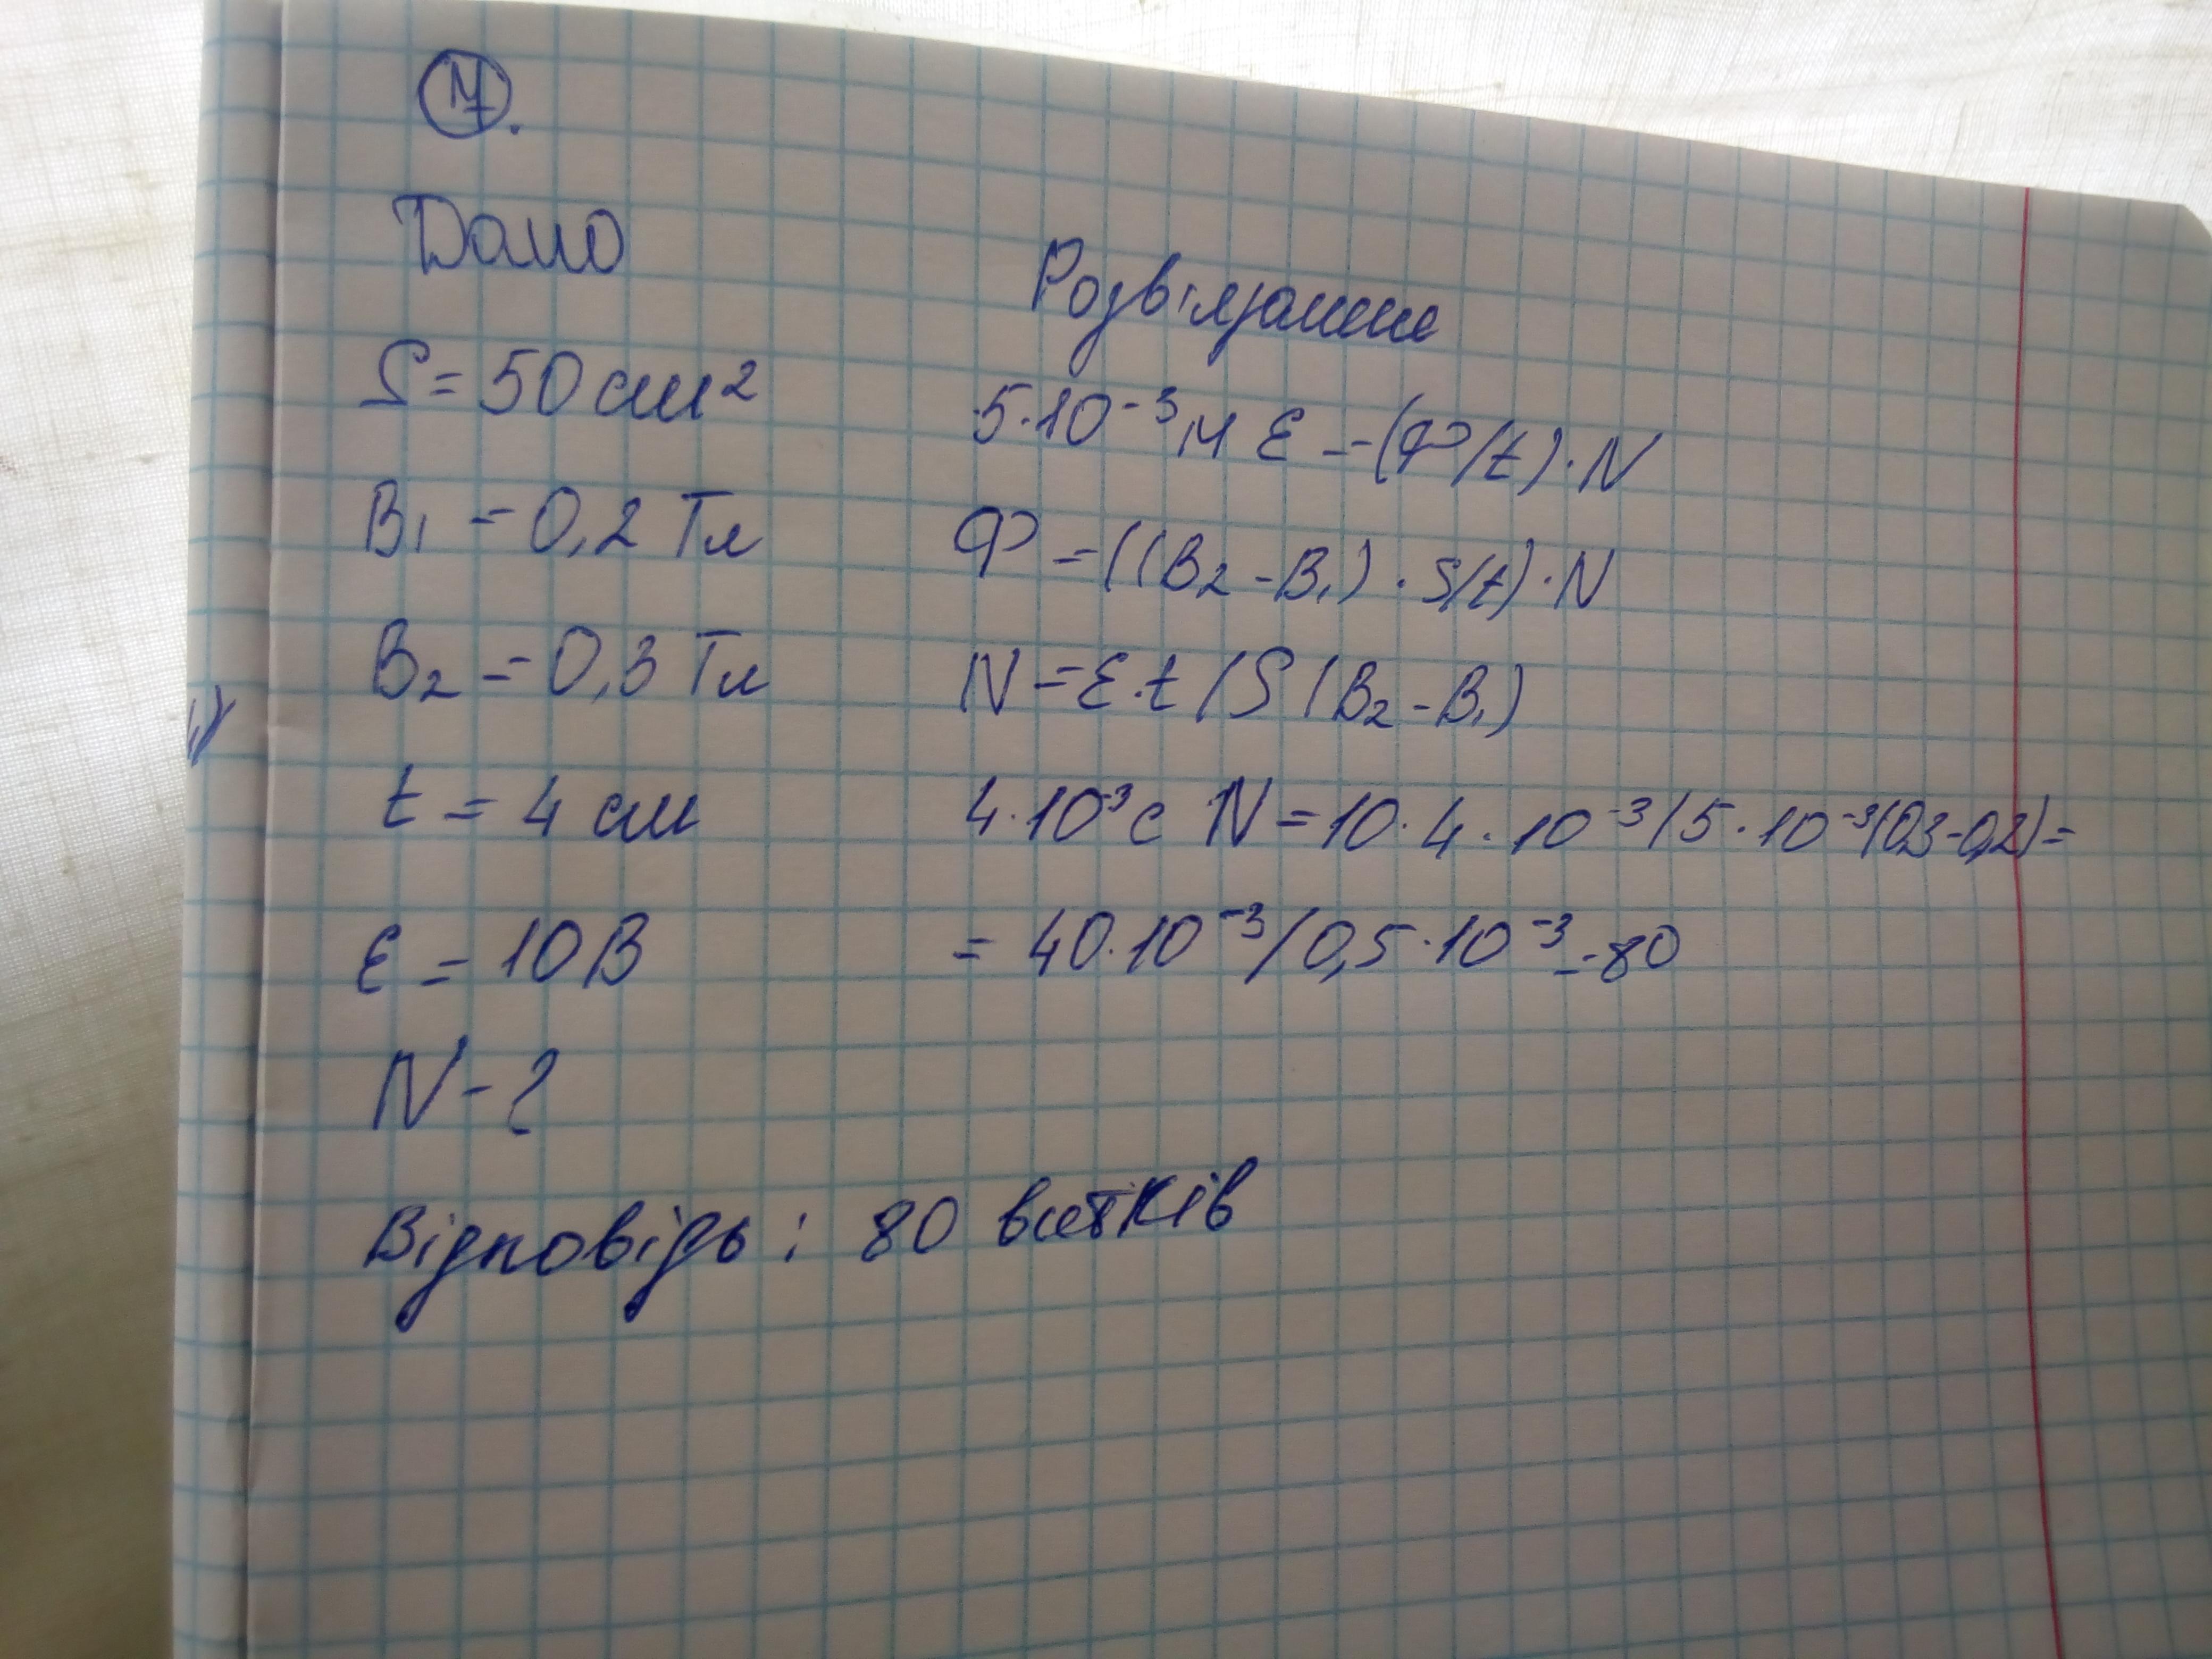 Дано
Розв'язання
S = 50 см² 5·10⁻³ м ε = (Φ/t)·N
B₁ = 0,2 Тл Φ = ((B₂ - B₁)·S/t)·N
B₂ = 0,3 Тл N = ε·t/S(B₂ - B₁)
t = 4 см 4·10⁻³ с N = 10·4·10⁻³/5·10⁻³(0,3-0,2) =
ε = 10 В = 40·10⁻³/0,5·10⁻³ = 80
N - ?
Відповідь: 80 витків